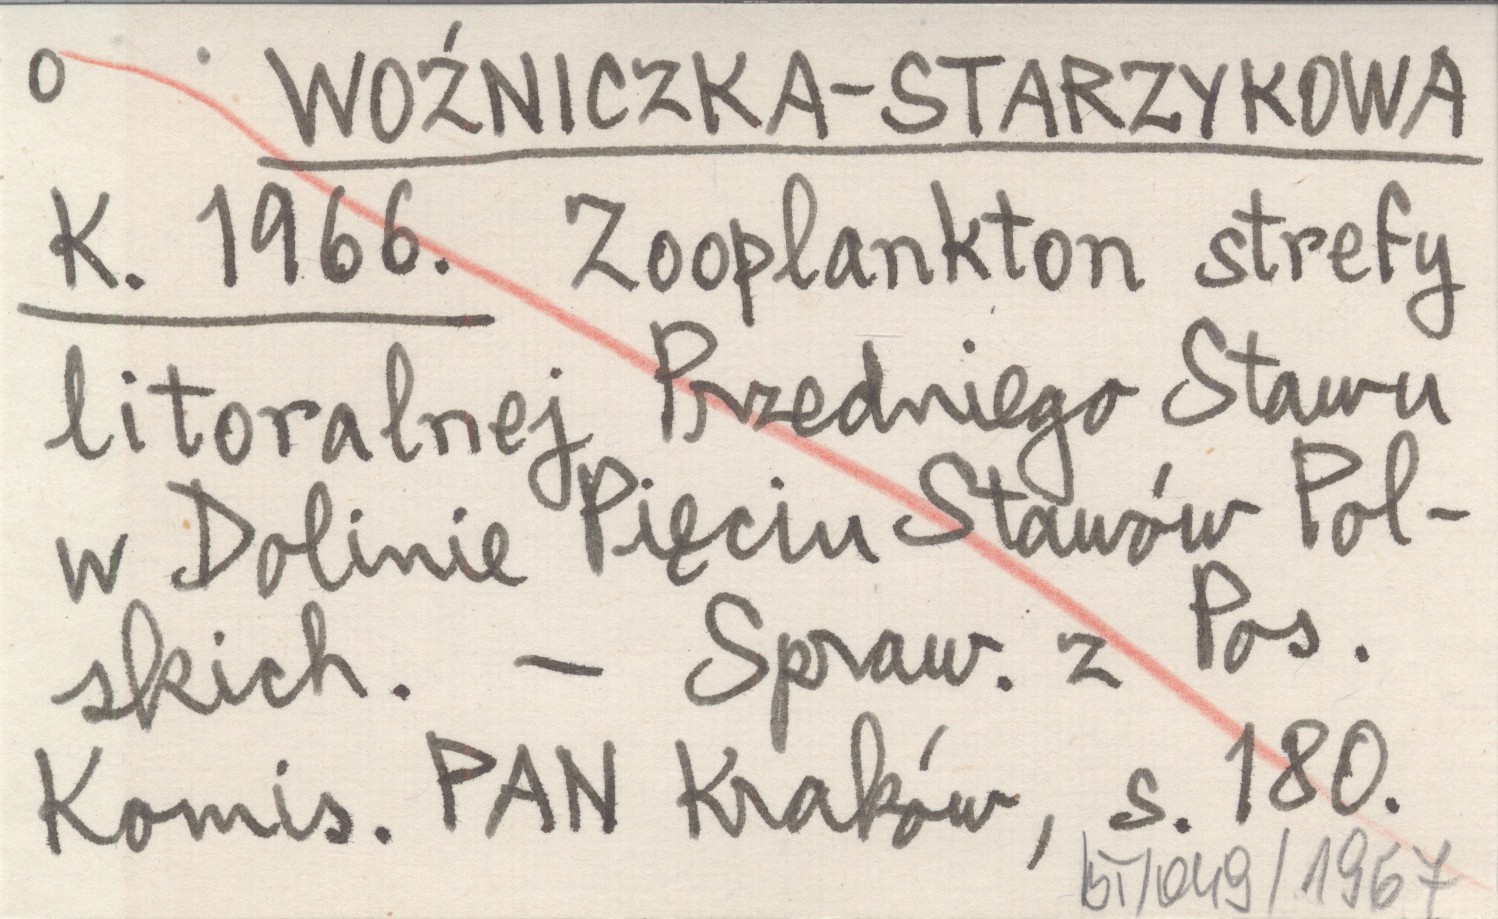 o WOŹNICZKA-STARZYKOWA
K. 1966. Zooplankton strefy
litoralnej Przedniego Stawu
w Dolinie Pięciu Stawów Pol-
skich. – Spraw. z Pos.
Komis. PAN Kraków, s. 180.
/049/1967